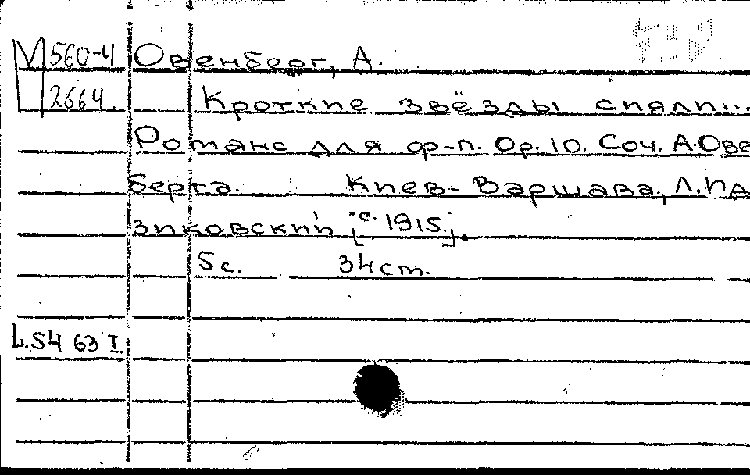 М 560-4 Овенберг, А.
2664. Кроткие звёзды сияли...
Романс для ф-п. Ор. 10. Соч. А. Ове
берга. Киев-Варшава, Л. Ид
зиковский [с. 1915].
5 с. 34 cm.
L.54 63 I